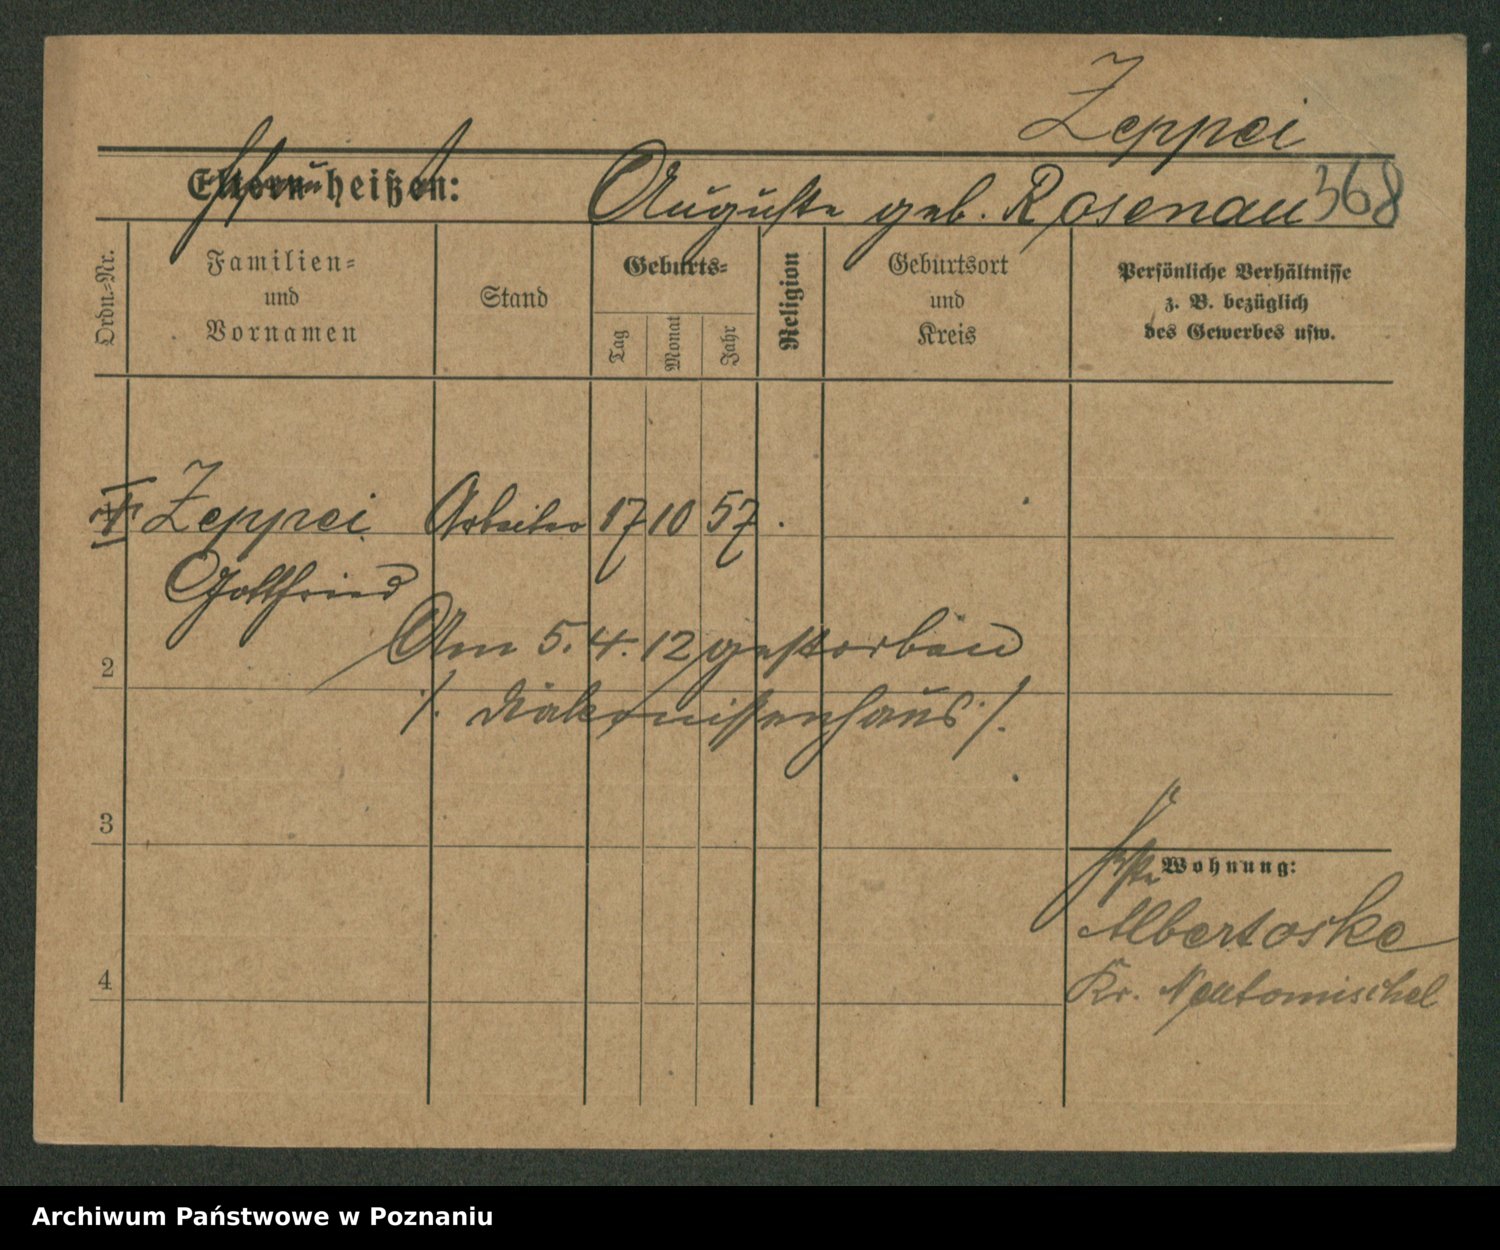 Zeppei
Eltern heißen: Auguste geb. Rosenau 368
Ordn.-Nr.
Familien-
und
Vornamen
Stand
Geburts-
Tag
Monat
Jahr
Religion
Geburtsort
und
Kreis
Persönliche Verhältnisse
z. B. bezüglich
des Gewerbes usw.
Zeppei Arbeiter 17 10 57
Gottfried
Am 5. 4. 12 gestorben
2
/. Diakonissenhaus ./.
3
Wohnung:
Albertoske
4
Kr. Neutomischel
Archiwum Państwowe w Poznaniu